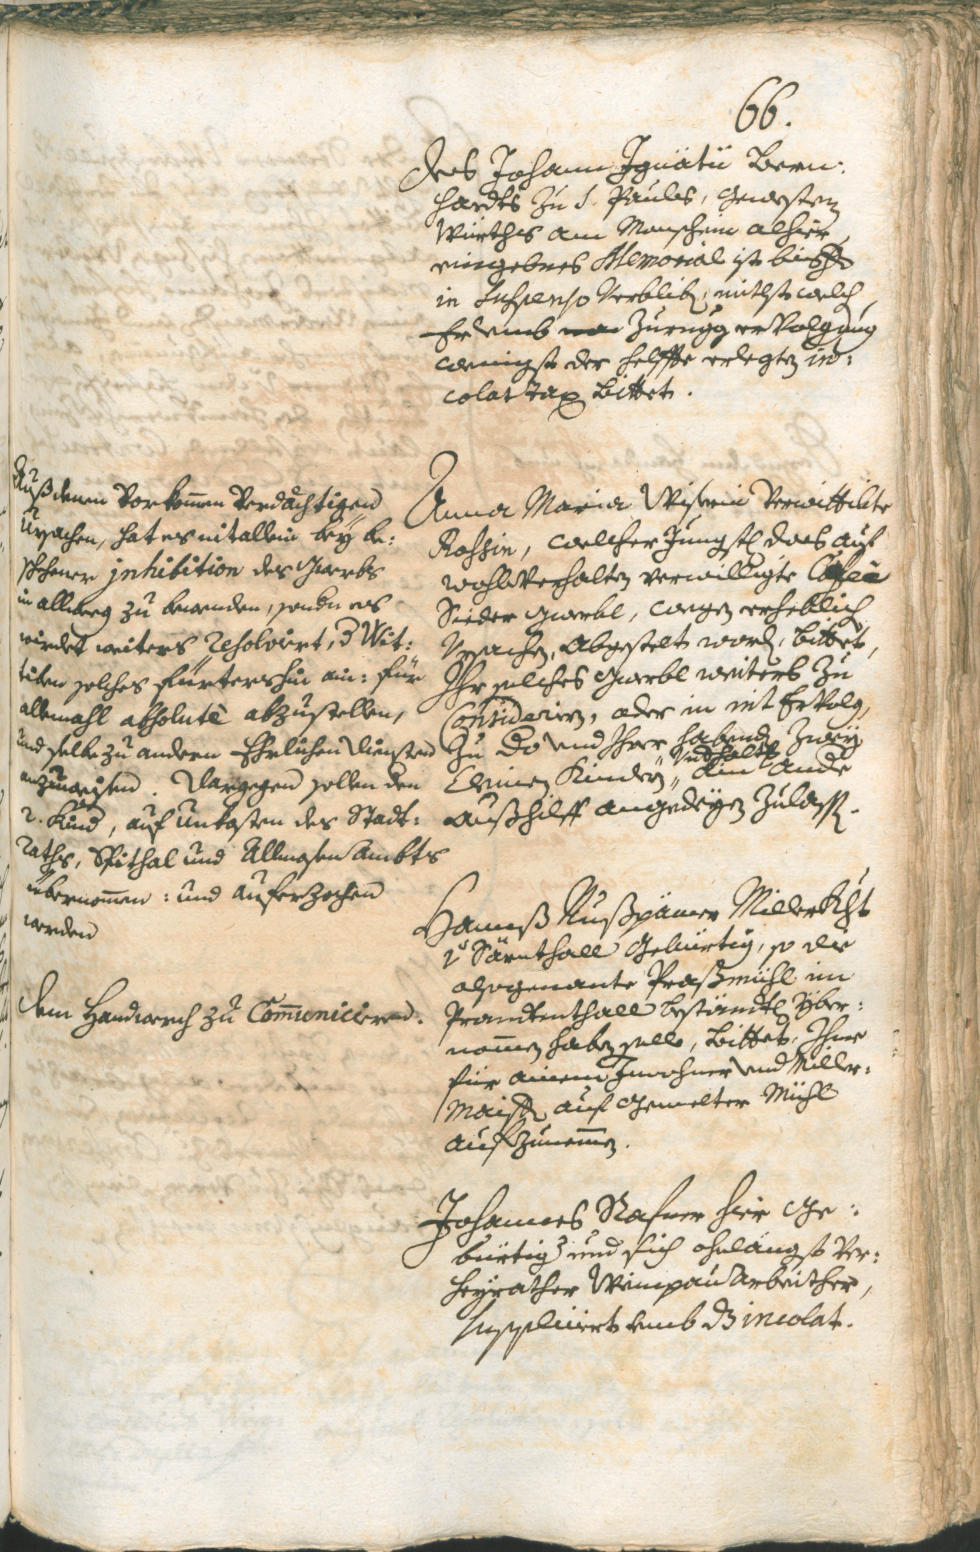 66.
des Johann Ignätii Bern:
hardts zu S. Paulß, gewesten
Würths am Monschein alhier
eingebnes Memorial ist bishero
in Suspenso verblibn, mitlst welch
Er umb zurugg ervolgung
wenigst der helffte erlegten in:
colat tax bittet.
Anna Maria Wiserin verwittibte
Rossin, welcher jungstl das auf
wohlverhalten verwilligte Caffee
Sieder gwerbl, wegen erheblich
Ursachen, abgestelt word, bittet,
Ihr solches gwerbl weiters zu
Considerirn, oder in nit Ervolg,
zu do und Ihrer habenden zwey
Clainen Kindern Undhalt ain ande
außhilff angedeyen zulassn.
Außdenen vorkomen verdächtigen
Ursachen, hat es nit allein bey be:
schehener inhibition des Gwerbs
in allweg zu bewenden, sondern es
wirdet weiters resolvirt, d Wit:
tiben solches fürtershin ain: für
allemahl absolutè abzustellen,
und selbe zu andern Ehrlichen diensten
anzuweisen. Dargegen sollen den
2. Kind, auf unkosten des Stadt:
raths, Spithal und Allmosen ambts
übernomen: und auferzochen
werden
Hannß Nußpämer Millerkhn
zu Särnthall gebürtig, so die
alsogenante Praßmühl im
Prandtenthall bestandtl yber:
nomen haben solle, bittet, Ihne
für ainem Inwohner und Miller:
maistr auf gemelter Mühl
aufzunemen.
dem Handwerch zu Communiciern.
Johannes Rafner hier ge:
bürtig und sich ohnlängst ver:
heyrather Weinpau arbeither,
supplicirt umb dz incolat.